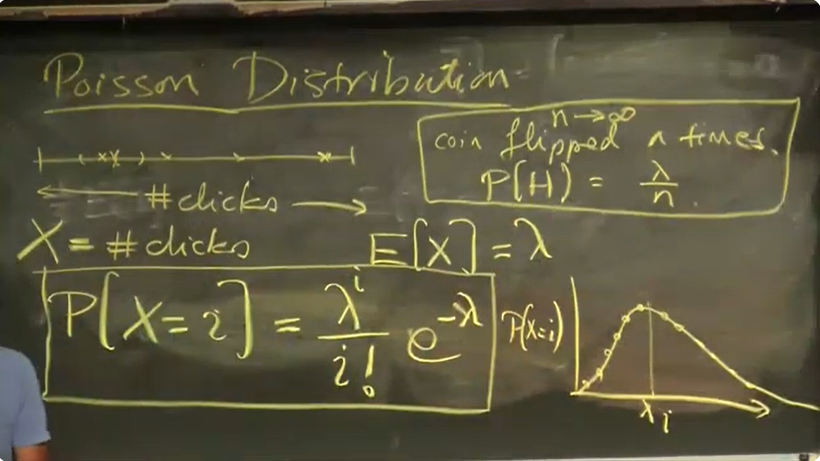 Poisson Distribution
n→∞
coin flipped n times.
P(H) = λ/n.
← #clicks →
X = #clicks
E[X] = λ
P[X=i] = λ^i/i! e^-λ
P(X=i)
λ
i